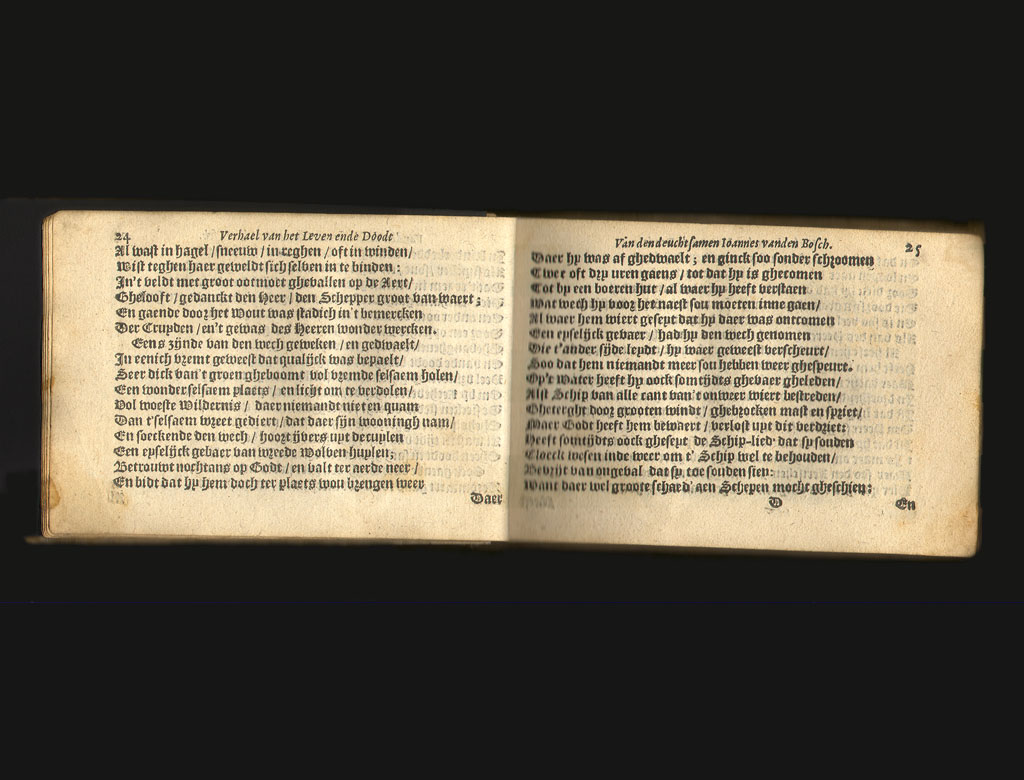 24 Verhael van het Leven ende Doodt
Al wast in hagel / sneeuw / in reghen / oft in winden /
Wist teghen haer geweldt sich selven in te binden :
In't veldt met groot ootmoet ghevallen op de Aert /
Ghelooft / gedanckt den Heer / den Schepper groot van waert ;
En gaende door het Wout was stadich in't bemercken
Der Cruyden / en't gewas des Heeren wonder wercken.
Eens zijnde van den wech geweken / en gedwaelt /
In eenich vremt geweest dat qualijck was bepaelt /
Seer dick van't groen gheboomt vol vremde selsaem holen /
Een wonder selsaem plaets / en licht om te verdolen /
Vol woeste Wildernis / daer niemandt niet en quam
Dan t'selsaem wreet gediert / dat daer sijn wooningh nam /
En soeckende den wech / hoort ijvers uyt der uylen
Een eyselijck gebaer van wreede Wolven huylen ;
Betrouwt nochtans op Godt / en valt ter aerde neer /
En bidt dat hy hem doch ter plaets wou brengen weer
Daer
Van den deuchtsamen Ioannes vanden Bosch. 25
Daer hy was af ghedwaelt ; en ginck soo sonder schroomen
Twee oft dry uren gaens / tot dat hy is ghecomen
Tot by een boeren hut / al waer hy heeft verstaen
Wat wech hy voor het naest sou moeten inne gaen /
Al waer hem wiert geseyt dat hy daer was ontcomen
Een eyselijck gevaer / had hy den wech genomen
Die t'ander sijde leydt / hy waer geweest verscheurt /
Soo dat hem niemandt meer sou hebben weer ghespeurt.
Op't Water heeft hy oock somtijdts ghevaer gheleden /
Als't Schip van alle cant van't onweer wiert bestreden /
Gheterght door grooten windt / ghebroken mast en spriet /
Maer Godt heeft hem bewaert / verlost uyt dit verdriet:
Heeft somtijdts oock gheseyt de Schip-lied' dat sy souden
Cloeck wesen inde weer om t' Schip wel te behouden /
Bevrijt van ongeval dat sy toe souden sien:
Want daer wel groote schard' aen Schepen mocht gheschien:
D En